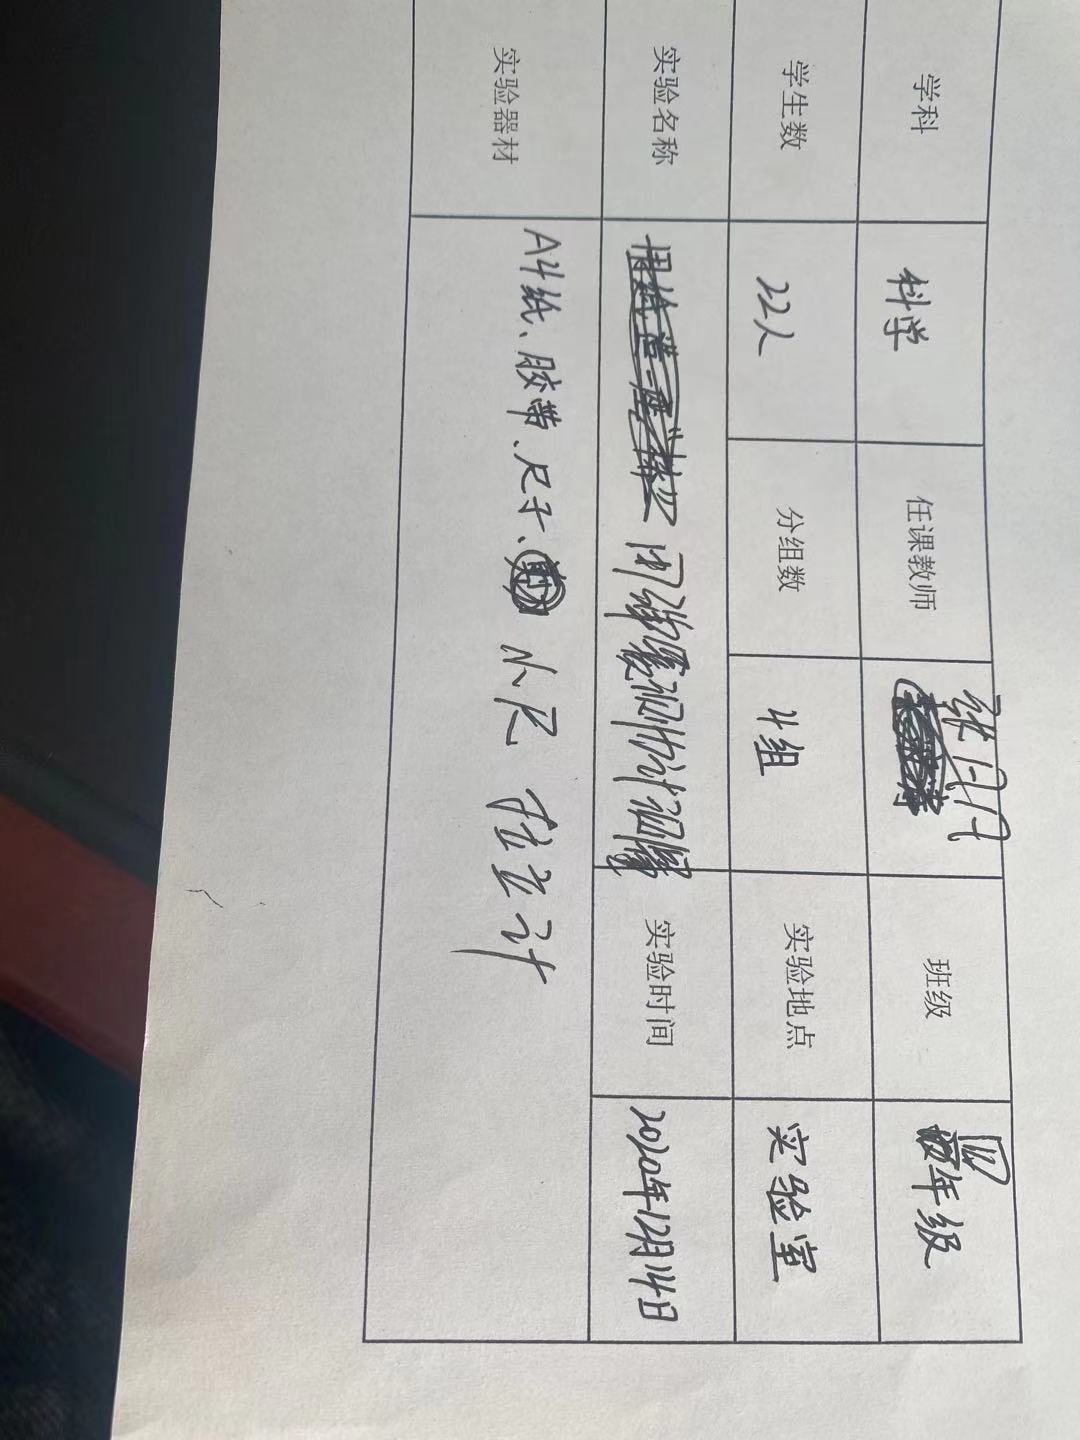 学科 科学 任课教师 班级 四年级
学生数 22人 分组数 4组 实验地点 实验室
实验名称 实验时间 2020年12月14日
实验器材 A4纸、胶带、尺子、小尺